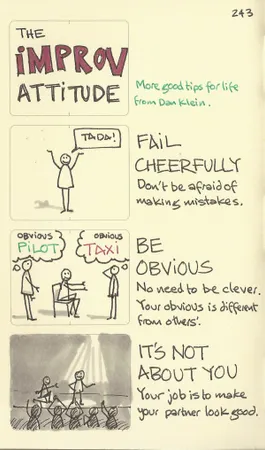 243
THE
IMPROV
ATTITUDE
More good tips for life
from Dan Klein.
TADA!
FAIL
CHEERFULLY
Don't be afraid of
making mistakes.
OBVIOUS
PILOT
OBVIOUS
TAXI
BE
OBVIOUS
No need to be clever.
Your obvious is different
from others'.
IT'S NOT
ABOUT YOU
Your job is to make
your partner look good.